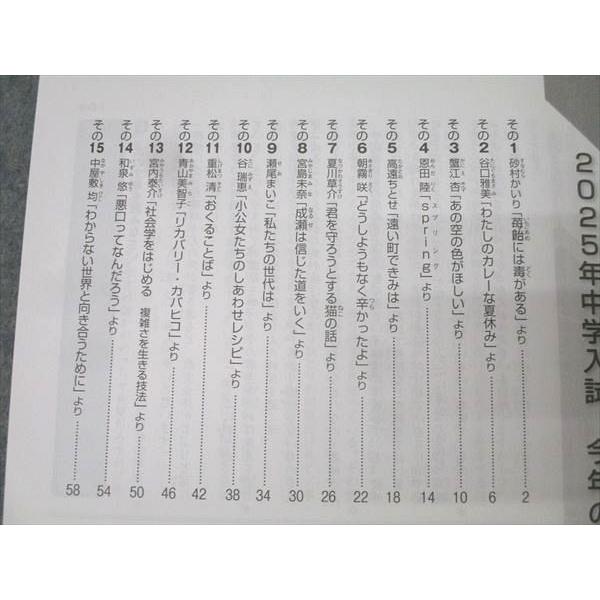 2025年中学入試 今年の
その1 砂村かいり「苺飴には毒がある」より 2
その2 谷口雅美「わたしのカレーな夏休み」より 6
その3 蟹江 杏「あの空の色がほしい」より 10
その4 恩田 陸「spring」より 14
その5 高遠ちとせ「遠い町できみは」より 18
その6 朝霧 咲「どうしようもなく辛かったよ」より 22
その7 夏川草介「君を守ろうとする猫の話」より 26
その8 宮島未奈「成瀬は信じた道をいく」より 30
その9 瀬尾まいこ「私たちの世代は」より 34
その10 谷 瑞恵「小公女たちのしあわせレシピ」より 38
その11 重松 清「おくることば」より 42
その12 青山美智子「リカバリー・カバヒコ」より 46
その13 宮内泰介「社会学をはじめる 複雑さを生きる技法」より 50
その14 和泉 悠「悪口ってなんだろう」より 54
その15 中屋敷 均「わからない世界と向き合うために」より 58